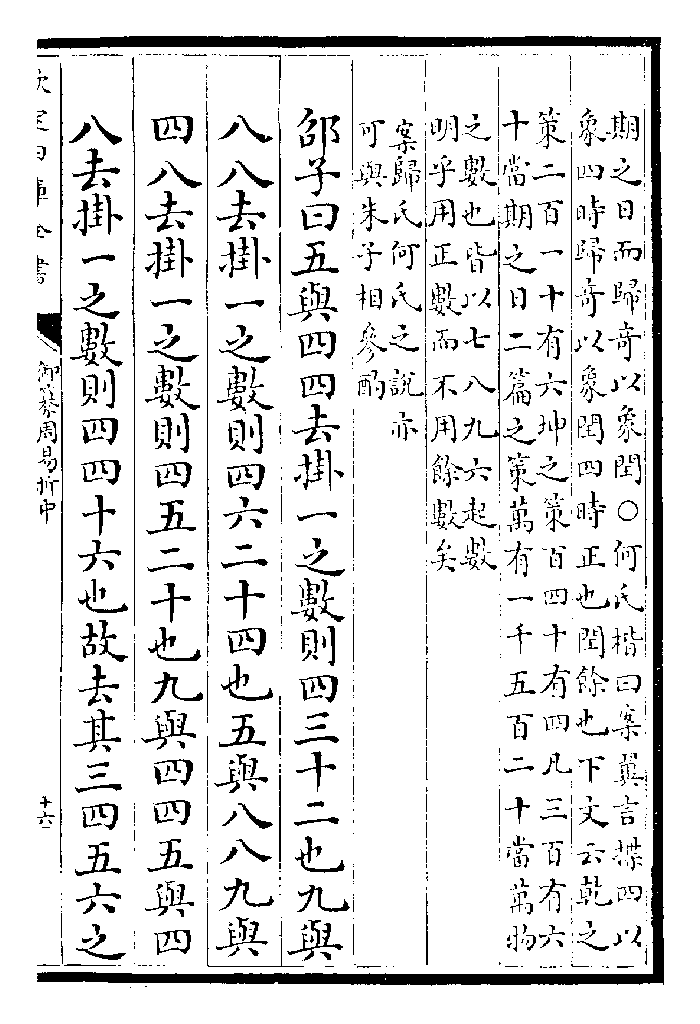 期之日而歸竒以象閏○何氏楷曰案翼言揲四以
象四時歸竒以象閏四時正也閏餘也下文云乾之
策二百一十有六坤之策百四十有四凡三百有六
十當期之日二篇之策萬有一千五百二十當萬物
之數也皆以七八九六起數
明乎用正數而不用餘數矣
案歸氏何氏之說亦
可與朱子相參酌
邵子曰五與四四去掛一之數則四三十二也九與
八八去掛一之數則四六二十四也五與八八九與
四八去掛一之數則四五二十也九與四四五與四
八去掛一之數則四四十六也故去其三四五六之
欽定四庫全書
御纂周易折中
十六